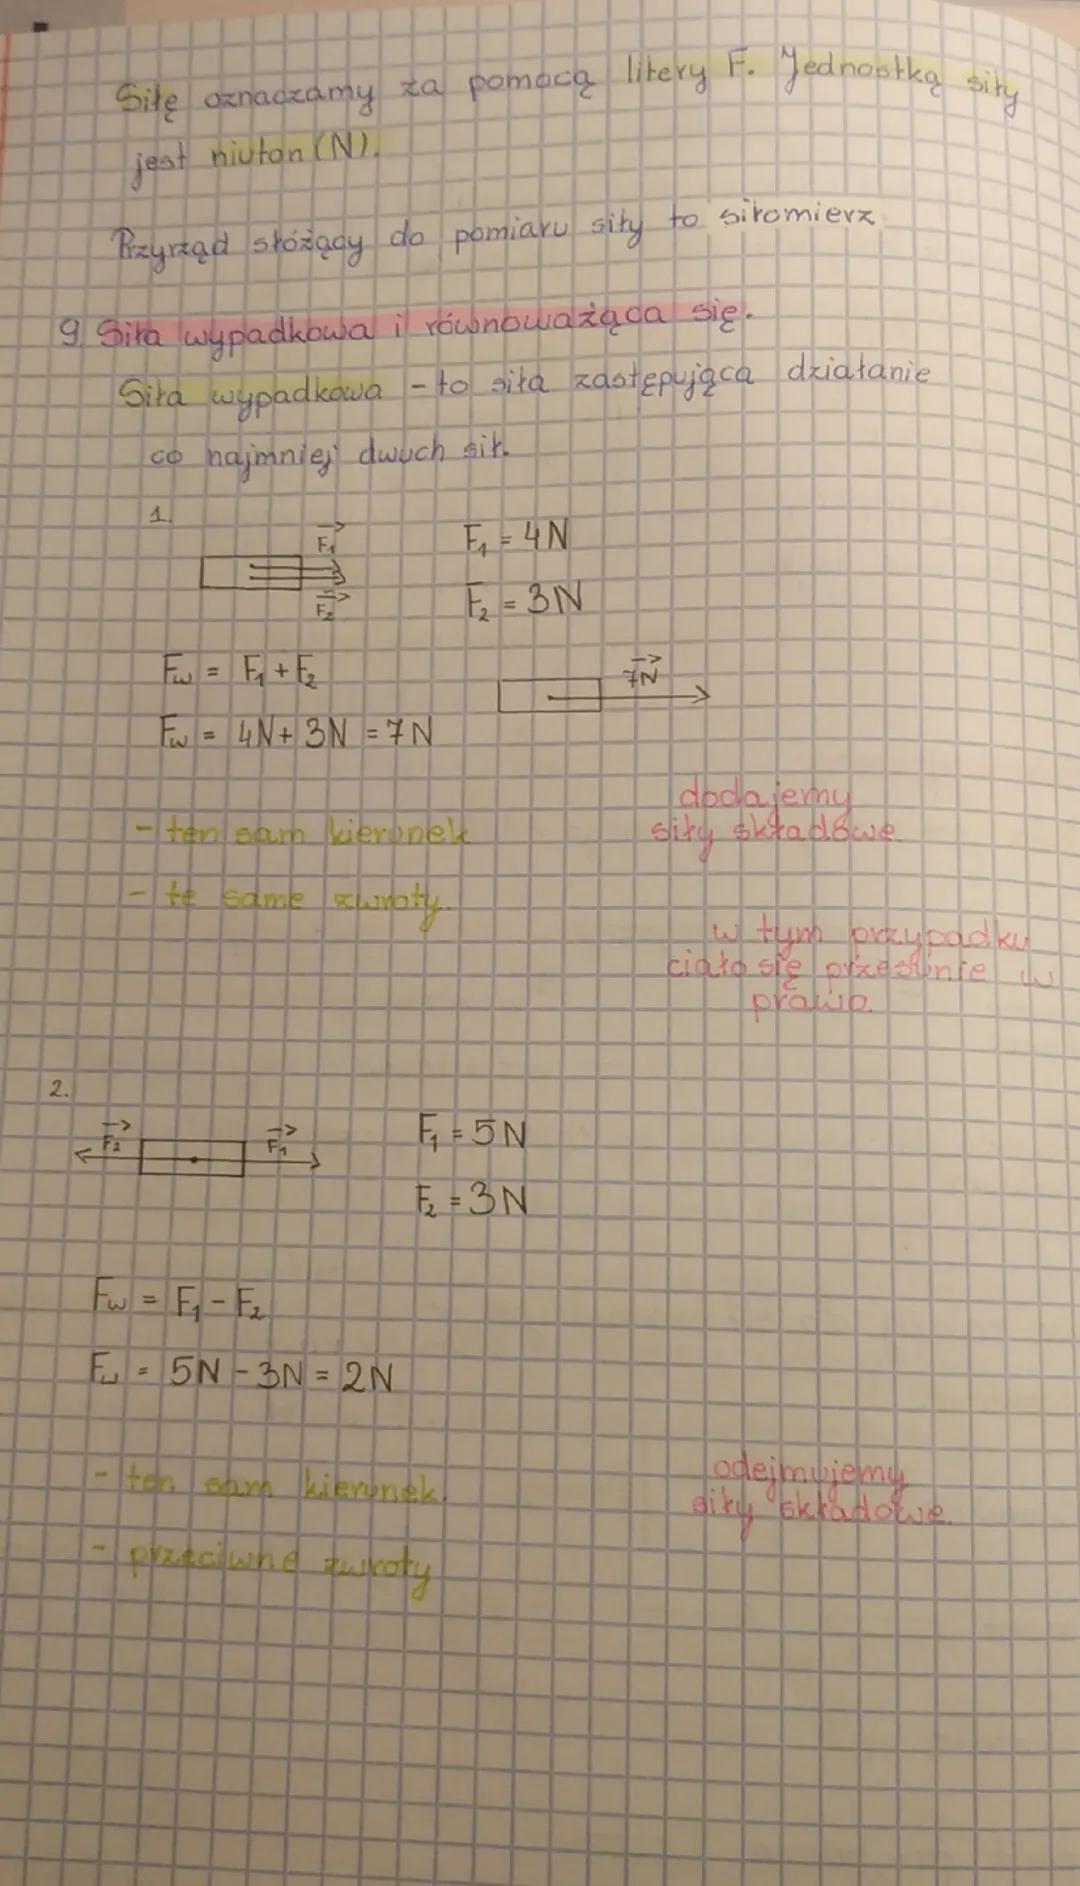 Siłę oznaczamy za pomocą litery F. Jednostką siły
jest niuton (N).
Przyrząd słóżący do pomiaru siły to siłomierz.
9. Siła wypadkowa i równoważąca się.
Siła wypadkowa - to siła zastępująca działanie
co najmniej dwuch sił.
1.
F₁
F₂
F₁ = 4N
F₂ = 3N
Fw = F₁ + F₂
7N
Fw = 4N + 3N = 7N
dodajemy
siły składowe.
- ten sam kierunek
- te same zwroty.
w tym przypadku
ciało się przesunie w
prawo.
2.
F₂
F₁
F₁ = 5N
F₂ = 3N
Fw = F₁ - F₂
Fw = 5N - 3N = 2N
- ten sam kierunek.
odejmujemy
siły składowe.
- przeciwne zwroty